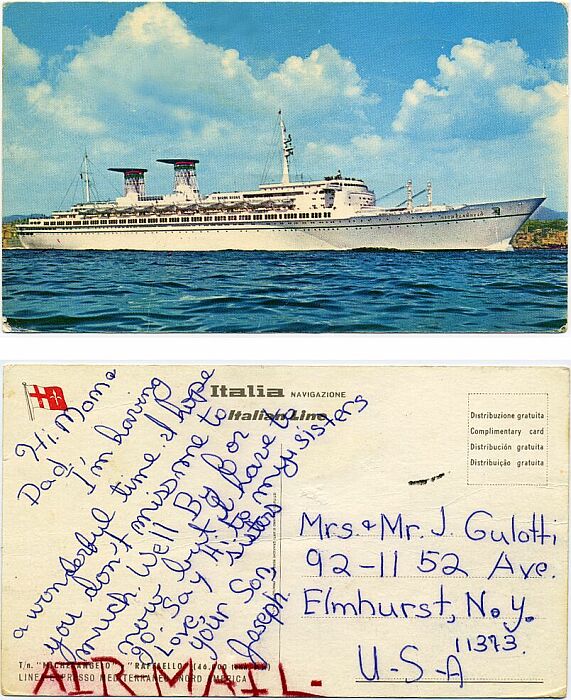 MICHELANGELO
Italia NAVIGAZIONE
Italian Line
Distribuzione gratuita
Complimentary card
Distribución gratuita
Distribuição gratuita
Hi. Mom &
Dad,
I'm having
a wonderful time. I hope
you don't miss me to
much. Well By For
now but I have to
go. Say Hi. to my sisters
Love, sisters
your Son,
Joseph.
Mrs. & Mr. J. Gulotti
92-11 52 Ave.
Elmhurst, N.Y.
11373.
U-S-A
T/n. "MICHELANGELO" - "RAFFAELLO" (46.000
LINEA ESPRESSO MEDITERRANEO NORD AMERICA
AIR MAIL-